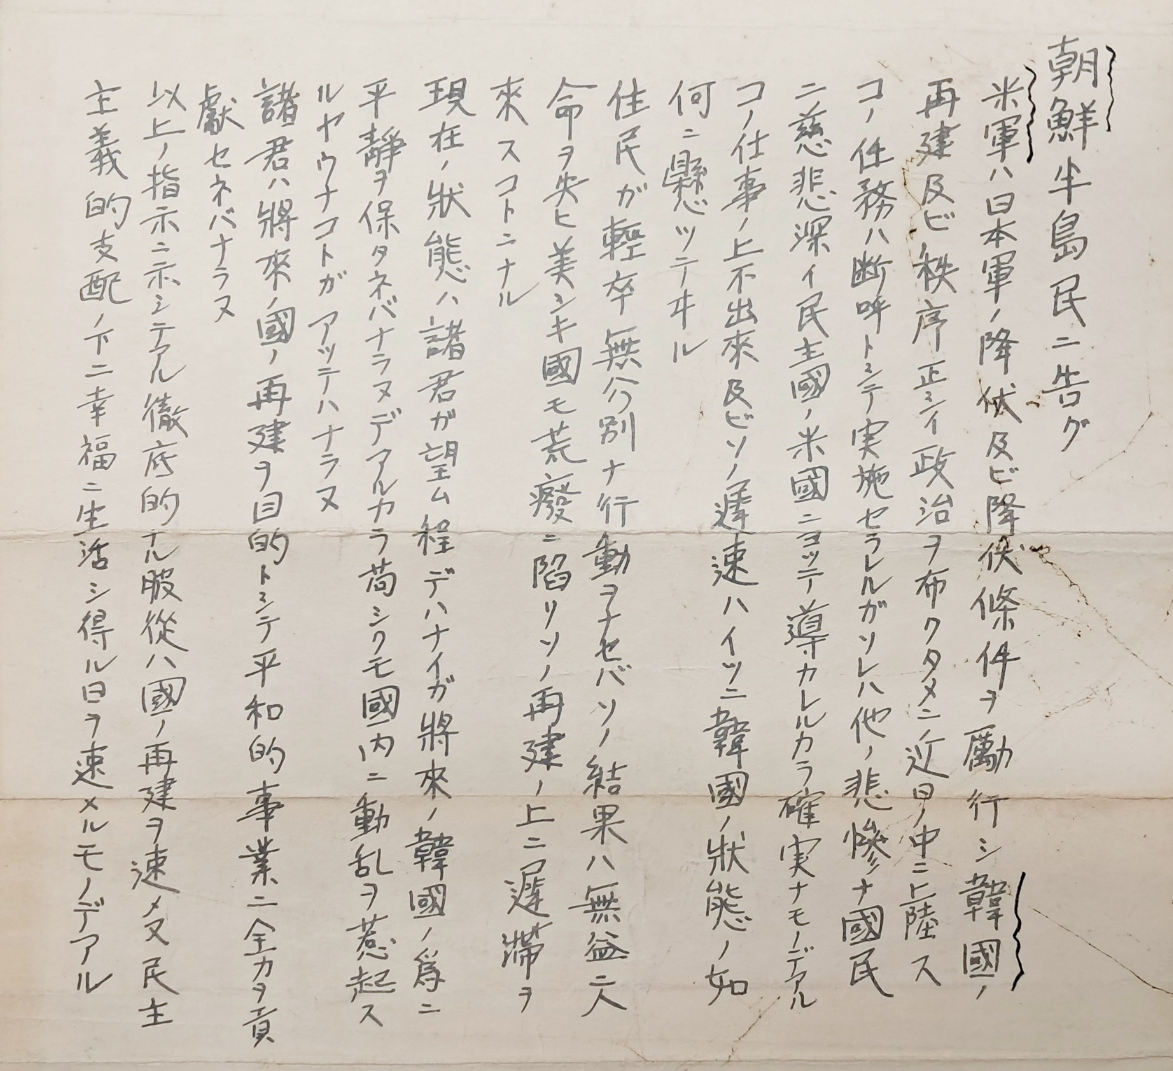 朝鮮半島民ニ告グ
米軍ハ日本軍ノ降伏及ビ降伏條件ヲ勵行シ韓國ノ
再建及ビ秩序正シイ政治ヲ布クタメニ近日ノ中ニ上陸ス
コノ任務ハ断呼トシテ実施セラレルガソレハ他ノ悲惨ナ國民
ニ慈悲深イ民主國ノ米國ニヨッテ導カレルカラ確実ナモノデアル
コノ仕事ノ上不出來及ビソノ遲速ハイツニ韓國ノ狀態ノ如
何ニ懸ツテヰル
住民ガ輕卒無分別ナ行動ヲナセバソノ結果ハ無益ニ人
命ヲ失ヒ美シキ國モ荒廢ニ陷リソノ再建ノ上ニ遲滯ヲ
來スコトニナル
現在ノ狀態ハ諸君ガ望ム程デハナイガ將來ノ韓國ノ爲ニ
平靜ヲ保タネバナラヌデアルカラ苟シクモ國内ニ動乱ヲ惹起ス
ルヤウナコトガアッテハナラヌ
諸君ハ將來ノ國ノ再建ヲ目的トシテ平和的事業ニ全力ヲ貢
獻セネバナラヌ
以上ノ指示ニ示シテアル徹底的ナル服從ハ國ノ再建ヲ速メ又民主
主義的支配ノ下ニ幸福ニ生活シ得ル日ヲ速メルモノデアル